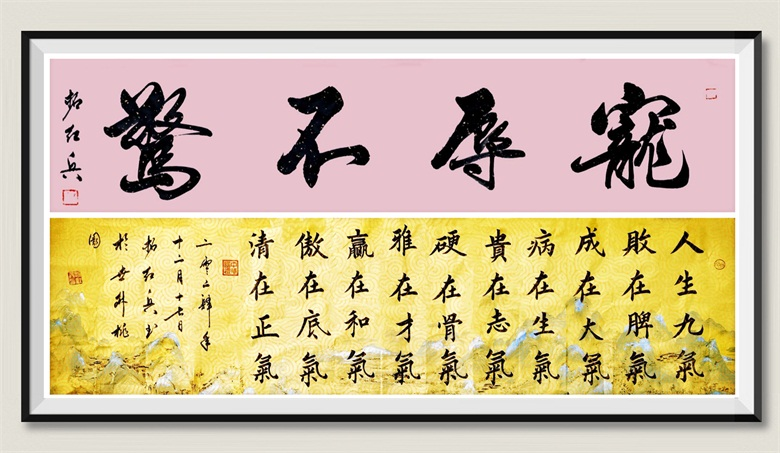 寵辱不驚
红兵
人生九氣
敗在脾氣
成在大氣
病在生氣
貴在志氣
硬在骨氣
雅在才氣
贏在和氣
傲在底氣
清在正氣
二零二肆年
十二月十七日
红兵书
於世外桃
園